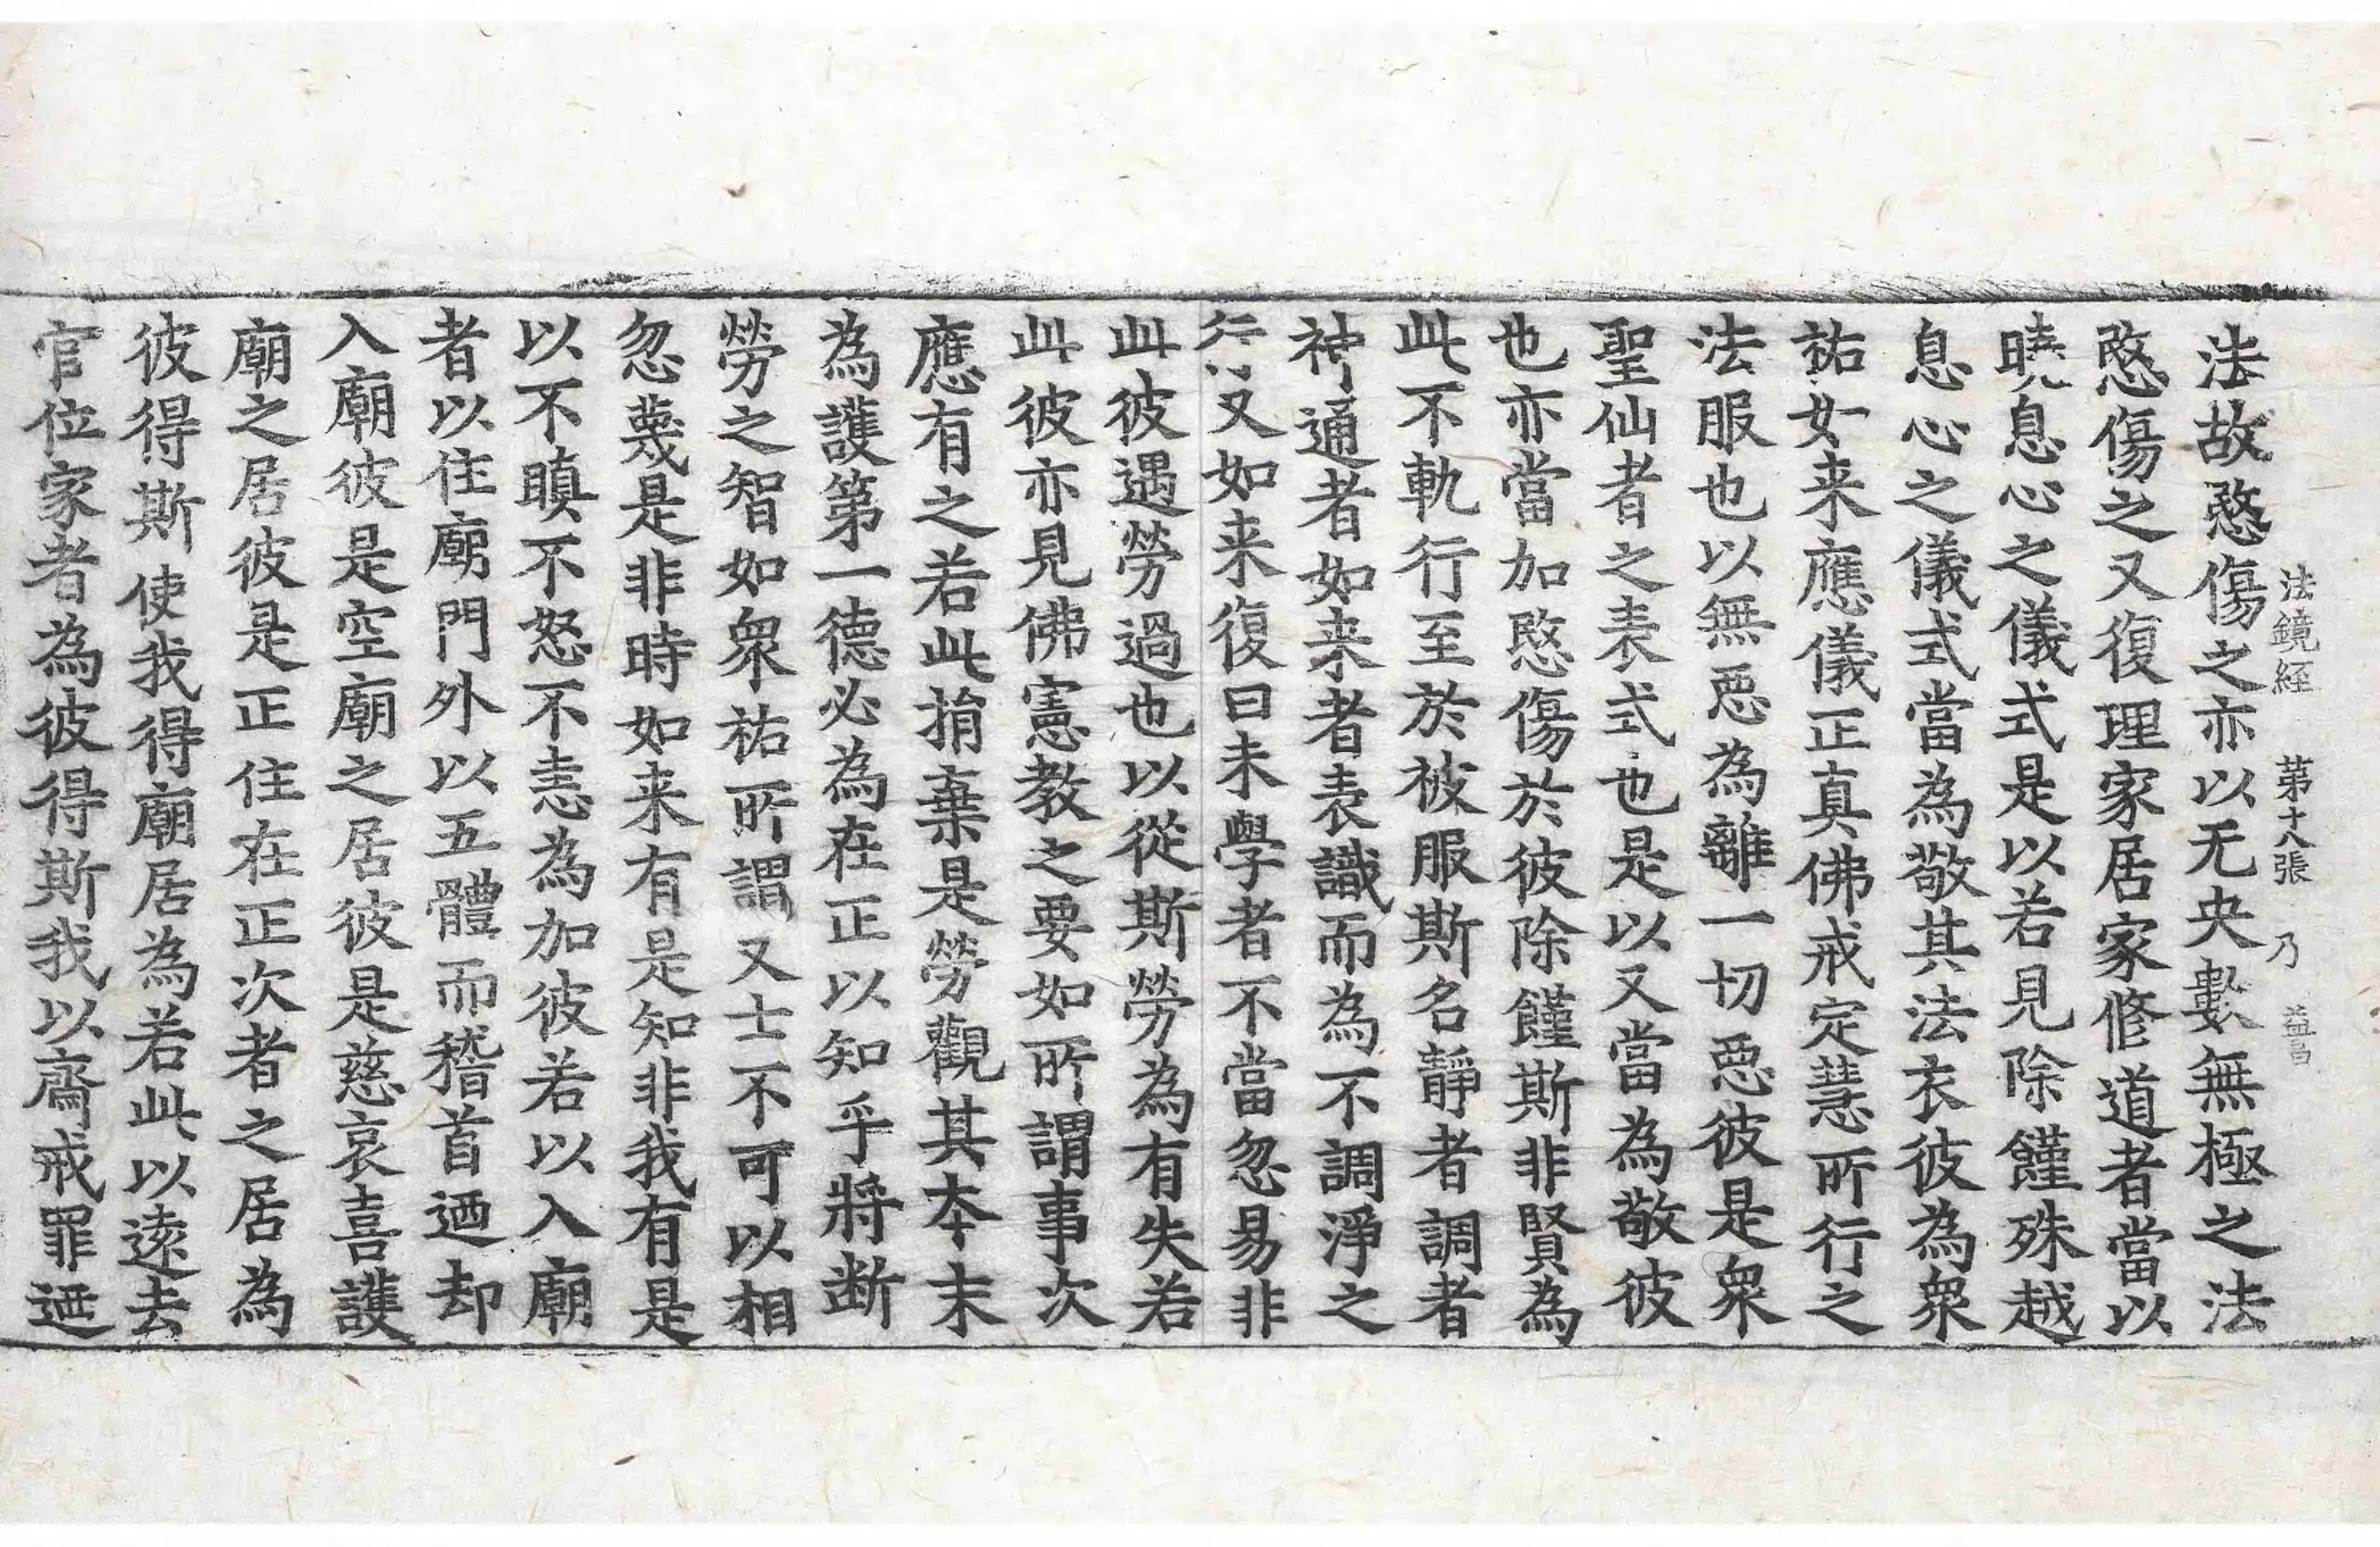 法鏡經 第十八張 乃 益昌
法故愍傷之亦以无央數無極之法
愍傷之又復理家居家修道者當以
曉息心之儀式是以若見除饉殊越
息心之儀式當為敬其法衣彼為衆
祐如来應儀正真佛戒定慧所行之
法服也以無惡為離一切惡彼是衆
聖仙者之表式也是以又當為敬彼
也亦當加愍傷於彼除饉斯非賢為
此不軌行至於被服斯名靜者調者
神通者如来者表識而為不調淨之
行又如来復曰未學者不當忽易非
此彼遇勞過也以從斯勞為有失若
此彼亦見佛憲教之要如所謂事次
應有之若此捐棄是勞觀其本末
為護第一德必為在正以知乎將断
勞之智如衆祐所謂又士不可以相
忽蔑是非時如来有是知非我有是
以不瞋不怒不恚為加彼若以入廟
者以住廟門外以五體而稽首迺却
入廟彼是空廟之居彼是慈哀喜護
廟之居彼是正住在正次者之居為
彼得斯使我得廟居為若此以遠去
官位家者為彼得斯我以齋戒罪迺